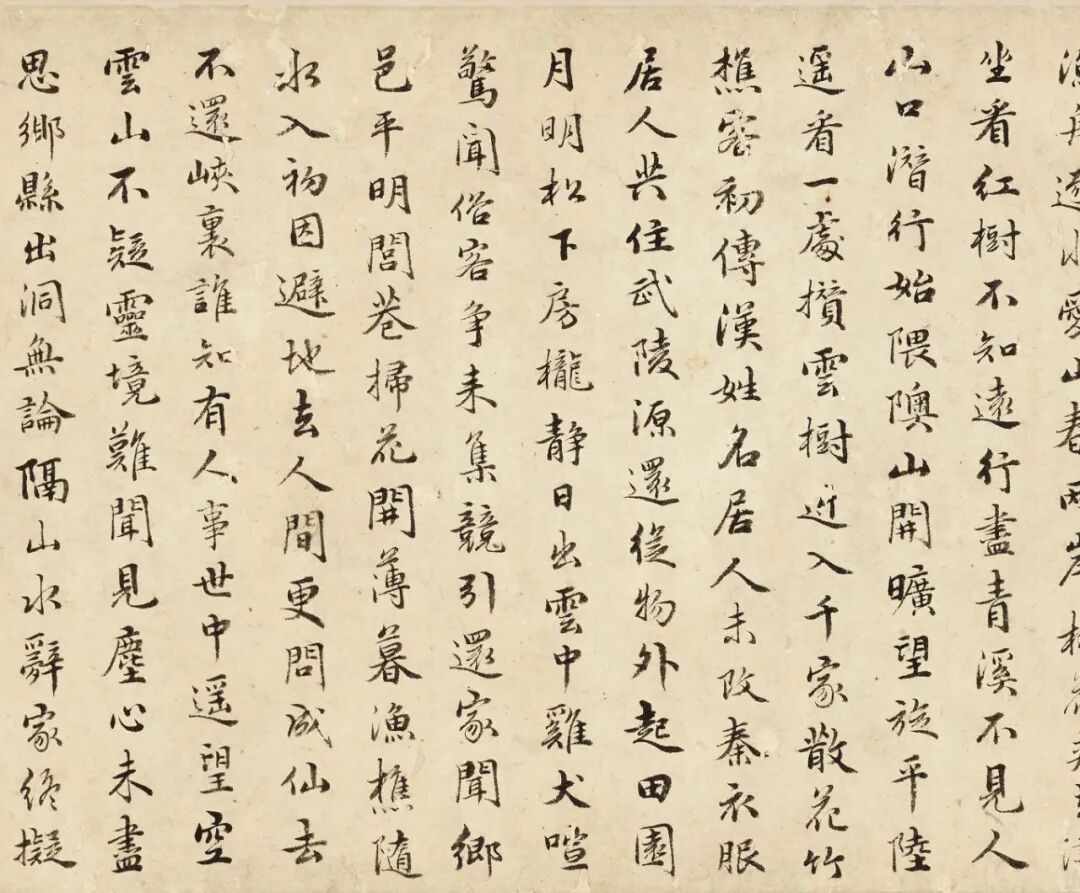 漁舟逐水愛山春兩岸桃花夾津
坐看紅樹不知遠行盡青溪不見人
山口潛行始隈隩山開曠望旋平陸
遥看一處攢雲樹近入千家散花竹
樵客初傳漢姓名居人未改秦衣服
居人共住武陵源還從物外起田園
月明松下房櫳静日出雲中雞犬喧
驚聞俗客争来集競引還家聞鄉
邑平明閭巷掃花開薄暮漁樵隨
水入初因避地去人間更問成仙去
不還峽裏誰知有人事世中遥望空
雲山不疑靈境難聞見塵心未盡
思鄉縣出洞無論隔山水辭家終擬